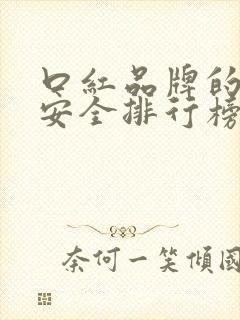 口紅品牌的
安全排行榜
奈何一笑傾國